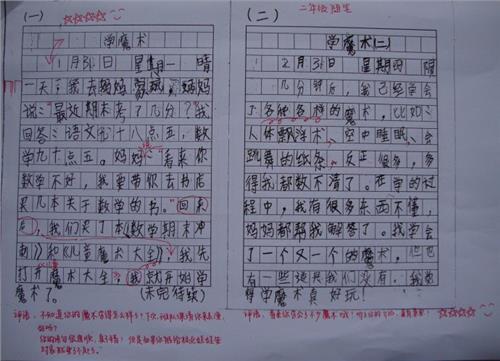 (一)
学魔术
1月31日 星期一 晴
一天，我去妈妈家玩，妈妈
说："最效期末考了几分？"我
回答："语文九十八点五，数
学九十点五。妈妈"看来你
数学不好，我要带你去书店
买几本关于数学的书。"回来
后，我们买了本《数学期末冲
刺》和《儿童魔术大全》，我先
打开魔术大全，我就开始学
魔术了。 (未完待续)
(二)
二年级随笔
学魔术(二)
2月31日 星期四 阴
几分钟后，我已经学会
了各种各样的魔术，比如：
人体飘浮术、空中睡眠、会
跳舞的纸条，反正很多，多
得我都数不清了。在学的过
程中，我有很多东西不懂，
妈妈都帮我解答了。我学会
了一个又一个的魔术，但也
有一些道具我们没有，我觉
得学魔术真好玩！